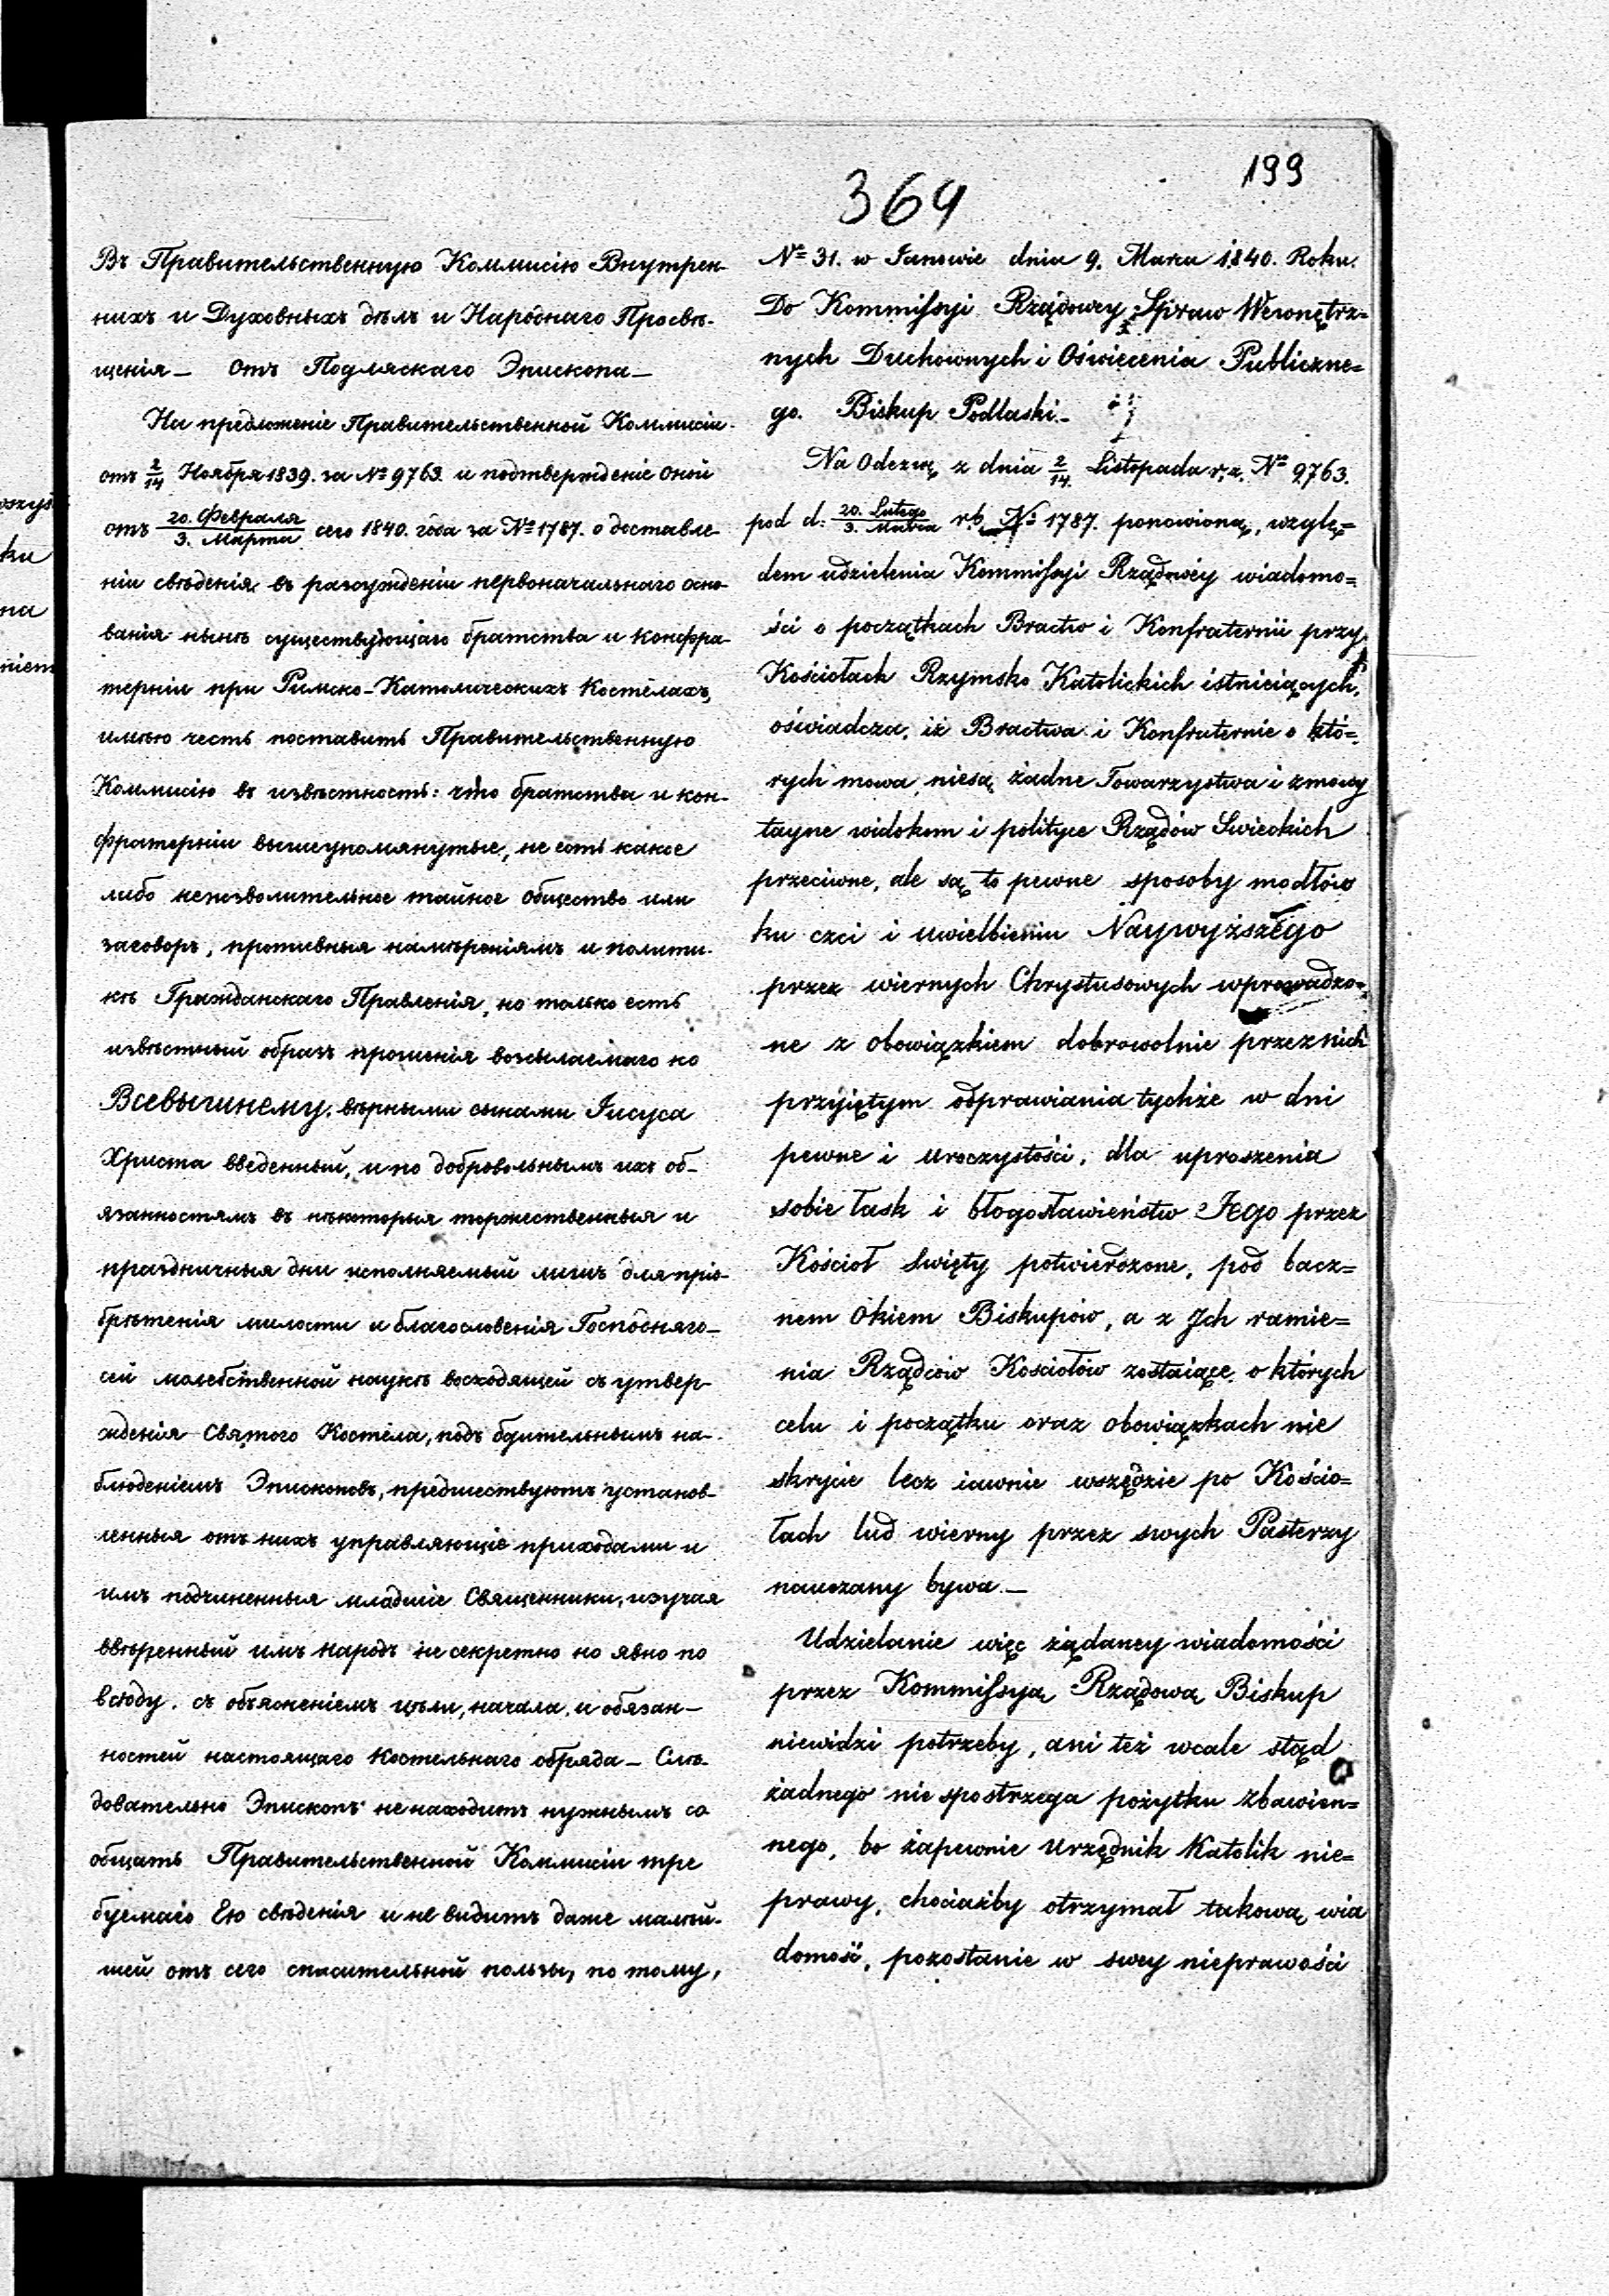 199
364
Въ Правительственную Коммисію Внутрен-
нихъ и Духовныхъ дѣлъ и Народнаго Просвѣ-
щенія — Отъ Подляскаго Эпископа —
На предложеніе Правительственной Коммисіи
отъ 2/14 Ноября 1839. за № 9763 и подтвержденіе оной
отъ 20. Февраля/3. Марта сего 1840. года за № 1787. о доставле-
ніи свѣденія въ разсужденіи первоначальнаго осно-
ванія нынѣ существующаго братства и конфра-
терніи при Римско-Католическихъ Костелахъ,
имѣю честь поставить Правительственную
Коммисію въ извѣстность: что братства и кон-
фратерніи вышеупомянутые, не есть какое
либо непозволительное тайное общество или
заговоръ, противныя намѣреніямъ и полити-
кѣ Гражданскаго Правленія, но только есть
извѣстный образъ прошенія возсылаемаго ко
Всевышнему, вѣрными сынами Іисуса
Христа введенный, и по добровольнымъ ихъ об-
язанностямъ въ нѣкоторыя торжественныя и
праздничныя дни исполняемый лишь для прio-
брѣтенія милости и благословенія Господняго —
сей молебственной наукѣ восходящей съ утвер-
жденія Святого Костела, подъ бдительнымъ на-
блюденіемъ Эпископовъ, предшествуютъ установ-
ленныя отъ нихъ управляющіе приходами и
имъ подчиненныя младшіе Священники, изучая
ввѣренный имъ народъ не секретно но явно по
всюду, съ объясненіемъ цѣли, начала, и обязан-
ностей настоящаго Костельнаго обряда — Слѣ-
довательно Эпископъ не находитъ нужнымъ со
общать Правительственной Коммисіи тре
буемаго Ею свѣденія и не видитъ даже малѣй-
шей отъ сего спасительной пользы, по тому,
№ 31. w Janowie dnia 9. Marca 1840. Roku.
Do Kommissyi Rządowey Spraw Wewnętrz=
nych Duchownych i Oświecenia Publiczne=
go. Biskup Podlaski. —
Na Odezwę z dnia 2/14. Listopada r. z. № 9763.
pod d: 20. Lutego/3. Marca r. b. № 1787. ponowioną, wzglę=
dem udzielenia Kommissyi Rządowey wiadomo=
ści o początkach Bractw i Konfraternii przy
Kościołach Rzymsko Katolickich istnieiących,
oświadcza, iż Bractwa i Konfraternie o któ=
rych mowa, niesą żadne Towarzystwa i zmowy
tayne widokom i polityce Rządów Swieckich
przeciwne, ale są to pewne sposoby modłów
ku czci i uwielbieniu Naywyższego
przez wiernych Chrystusowych wprowadzo=
ne z obowiązkiem dobrowolnie przez nich
przyiętym odprawiania tychże w dni
pewne i uroczystości, dla uproszenia
sobie łask i błogosławieństw Jego przez
Kościoł Swięty potwierdzone, pod bacz=
nem Okiem Biskupów, a z Jch ramie=
nia Rządców Kosciołów zostaiące, o których
celu i początku oraz obowiązkach nie
skrycie lecz iawnie wszędzie po Kościo=
łach lud wierny przez swych Pasterzy
nauczany bywa. —
Udzielanie więc żądaney wiadomości
przez Kommissyą Rządową Biskup
niewidzi potrzeby, ani też wcale stąd
żadnego nie spostrzega pożytku Zbawien=
nego, bo zapewnie Urzędnik Katolik nie=
prawy, chociażby otrzymał takową wia
domość, pozostanie w swey nieprawości